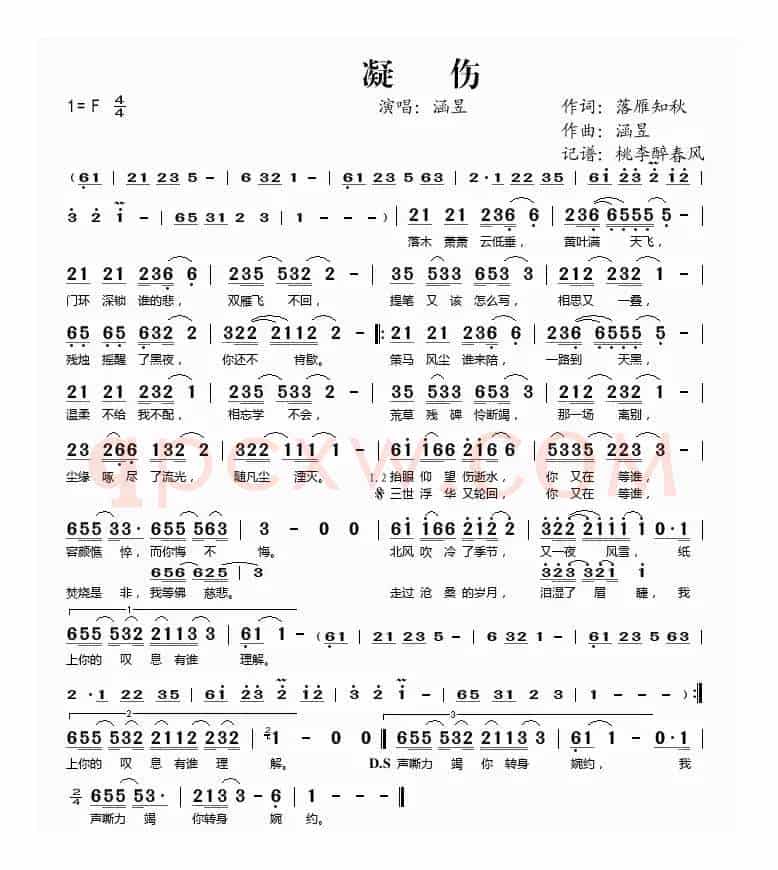 凝 伤
1= F 4/4 演唱：涵昱 作词：落雁知秋
作曲：涵昱
记谱：桃李醉春风
( 6 1 | 2 1 2 3 5 - | 6 3 2 1 - | 6 1 2 3 5 6 3 | 2 · 1 2 2 3 5 | 6 1 2 3 2 1 2 |
3 2 1 - | 6 5 3 1 2 3 | 1 - - - ) | 2 1 2 1 2 3 6 6 | 2 3 6 6 5 5 5 5 - |
落木 萧萧 云低垂， 黄叶满 天飞，
2 1 2 1 2 3 6 6 | 2 3 5 5 3 2 2 - | 3 5 5 3 3 6 5 3 5 | 2 1 2 2 3 2 1 - |
门环 深锁 谁的悲， 双雁飞 不回， 提笔 又 该 怎么写， 相思又 一叠，
6 5 6 5 6 3 2 2 | 3 2 2 2 1 1 2 2 - ‖: 2 1 2 1 2 3 6 6 | 2 3 6 6 5 5 5 5 - |
残烛 摇醒 了黑夜， 你还不 肯歇。 策马 风尘 谁来陪， 一路到 天黑，
2 1 2 1 2 3 2 1 | 2 3 5 5 3 3 2 - | 3 5 5 3 3 6 5 3 5 | 2 1 2 2 3 2 1 - |
温柔 不给 我不配， 相忘学 不会， 荒草 残 碑 怜断竭， 那一场 离别，
2 3 2 6 6 1 3 2 2 | 3 2 2 1 1 1 1 - | 6 1 1 6 6 2 1 6 6 | 5 3 3 5 2 2 3 5 - |
尘缘 啄 尽 了流光， 随凡尘 湮灭。 1. 2 抬眼 仰 望 伤逝水， 你 又在 等谁，
三世 浮 华 又轮回， 你 又在 等谁，
6 5 5 3 3 · 6 5 5 5 6 3 | 3 - 0 0 | 6 1 1 6 6 2 1 2 2 | 3 2 2 2 1 1 1 1 0 · 1 |
容颜憔 悴，而你悔 不 悔。 北风 吹 冷 了季节， 又一夜 风雪， 纸
6 5 6 6 2 5 | 3 3 2 1 3 2 1 1
焚烧是 非，我等佛 慈悲。 走过 沧 桑 的岁月， 泪湿了 眉 睫， 我
1
6 5 5 5 3 2 2 1 1 3 3 | 6 1 1 - ( 6 1 | 2 1 2 3 5 - | 6 3 2 1 - | 6 1 2 3 5 6 3 |
上你的 叹 息 有谁 理解。
2 · 1 2 2 3 5 | 6 1 2 3 2 1 2 | 3 2 1 - | 6 5 3 1 2 3 | 1 - - - ) :‖
2 3
6 5 5 5 3 2 2 1 1 2 2 3 2 | 1 - 0 0 ‖ 6 5 5 5 3 2 2 1 1 3 3 | 6 1 1 - 0 · 1 |
上你的 叹 息 有谁 理 解。 D.S 声嘶力 竭 你 转身 婉约， 我
2/4 6 5 5 5 3 · | 2 1 3 3 - 6 | 1 - ‖
声嘶力 竭 你转身 婉 约。
qpcxw.com